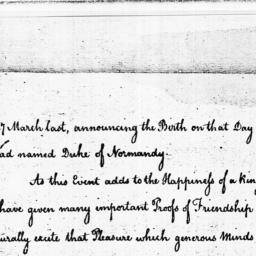 7 March last, announcing the Birth on that Day
had named Duke of Normandy.
As this Event adds to the Happiness of a King
have given many important Proofs of Friendship
urally excite that Pleasure which generous Minds